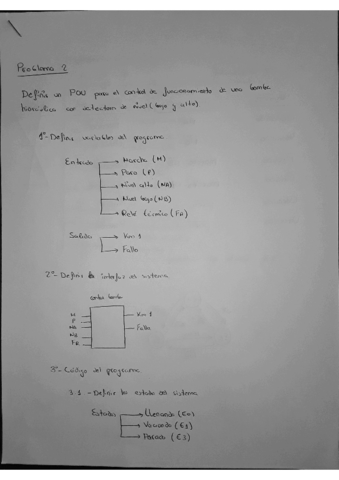 Problema 2
Definir un POU para el control de funcionamiento de una bomba
con detectores de nivel (bajo y alto).
1º- Definir variables del programa
Entrada
Marcha (M)
Paro (P)
Nivel alto (NA)
Nivel bajo (NB)
Relé térmico (FR)
Salida
Km 1
Fallo
2º- Definir interfaz del sistema
control bomba
M
P
NA
NB
FR
Km 1
Fallo
3º- Código del programa
3.1 - Definir los estados del sistema
Estados
Llenando (E0)
Vaciando (E1)
Parado (E3)